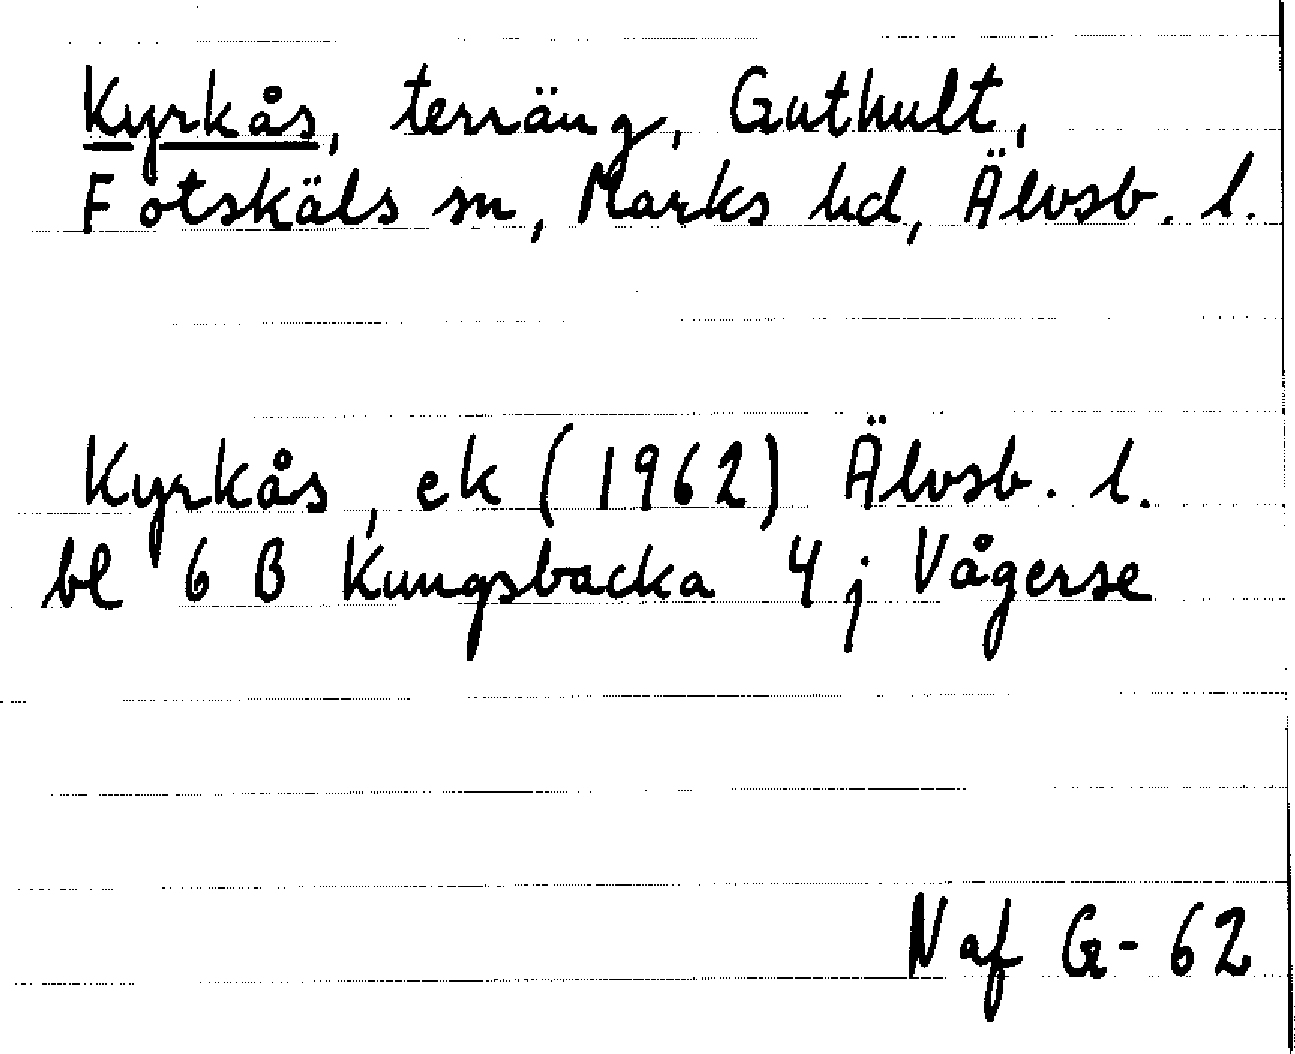 Kyrkås, terräng, Guthult,
Fotskäls sn, Marks hd, Älvsb. l.
Kyrkås, ek (1962) Älvsb. l.
bl 6 B Kungsbacka 4 j Vågerse
Naf G-62